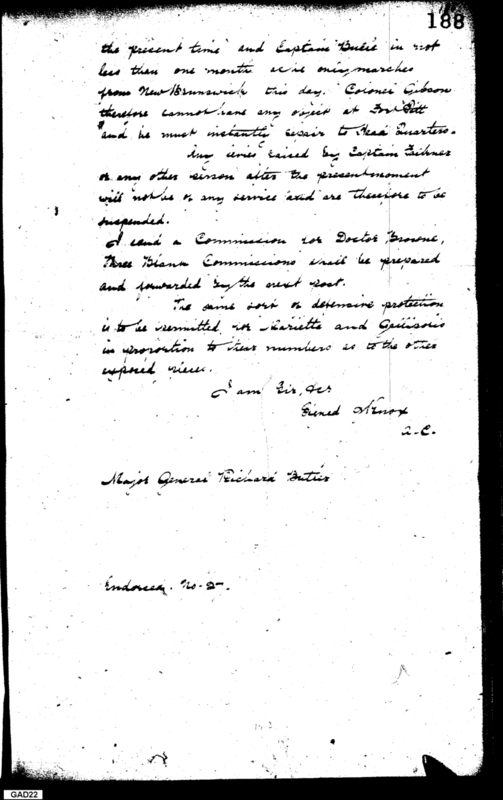 188
the present time and Captain Buell in not
less than one month as he only marches
from New Brunswick this day. Colonel Gibson
therefore cannot have any object at Fort Pitt
and he must instantly repair to Head Quarters.
Any levies raised by Captain Faulkner
or any other person after the present moment
will not be of any service and are therefore to be
suspended.
I send a Commission for Doctor Browne,
Three Blank Commissions shall be prepared
and forwarded by the next post.
The same sort of defensive protection
is to be permitted for Marietta and
in proportion to their numbers as to the other
exposed places.
I am Sir, &c
Signed H Knox
Major General Richard Butler
Endorsed. No. 2
GAD22